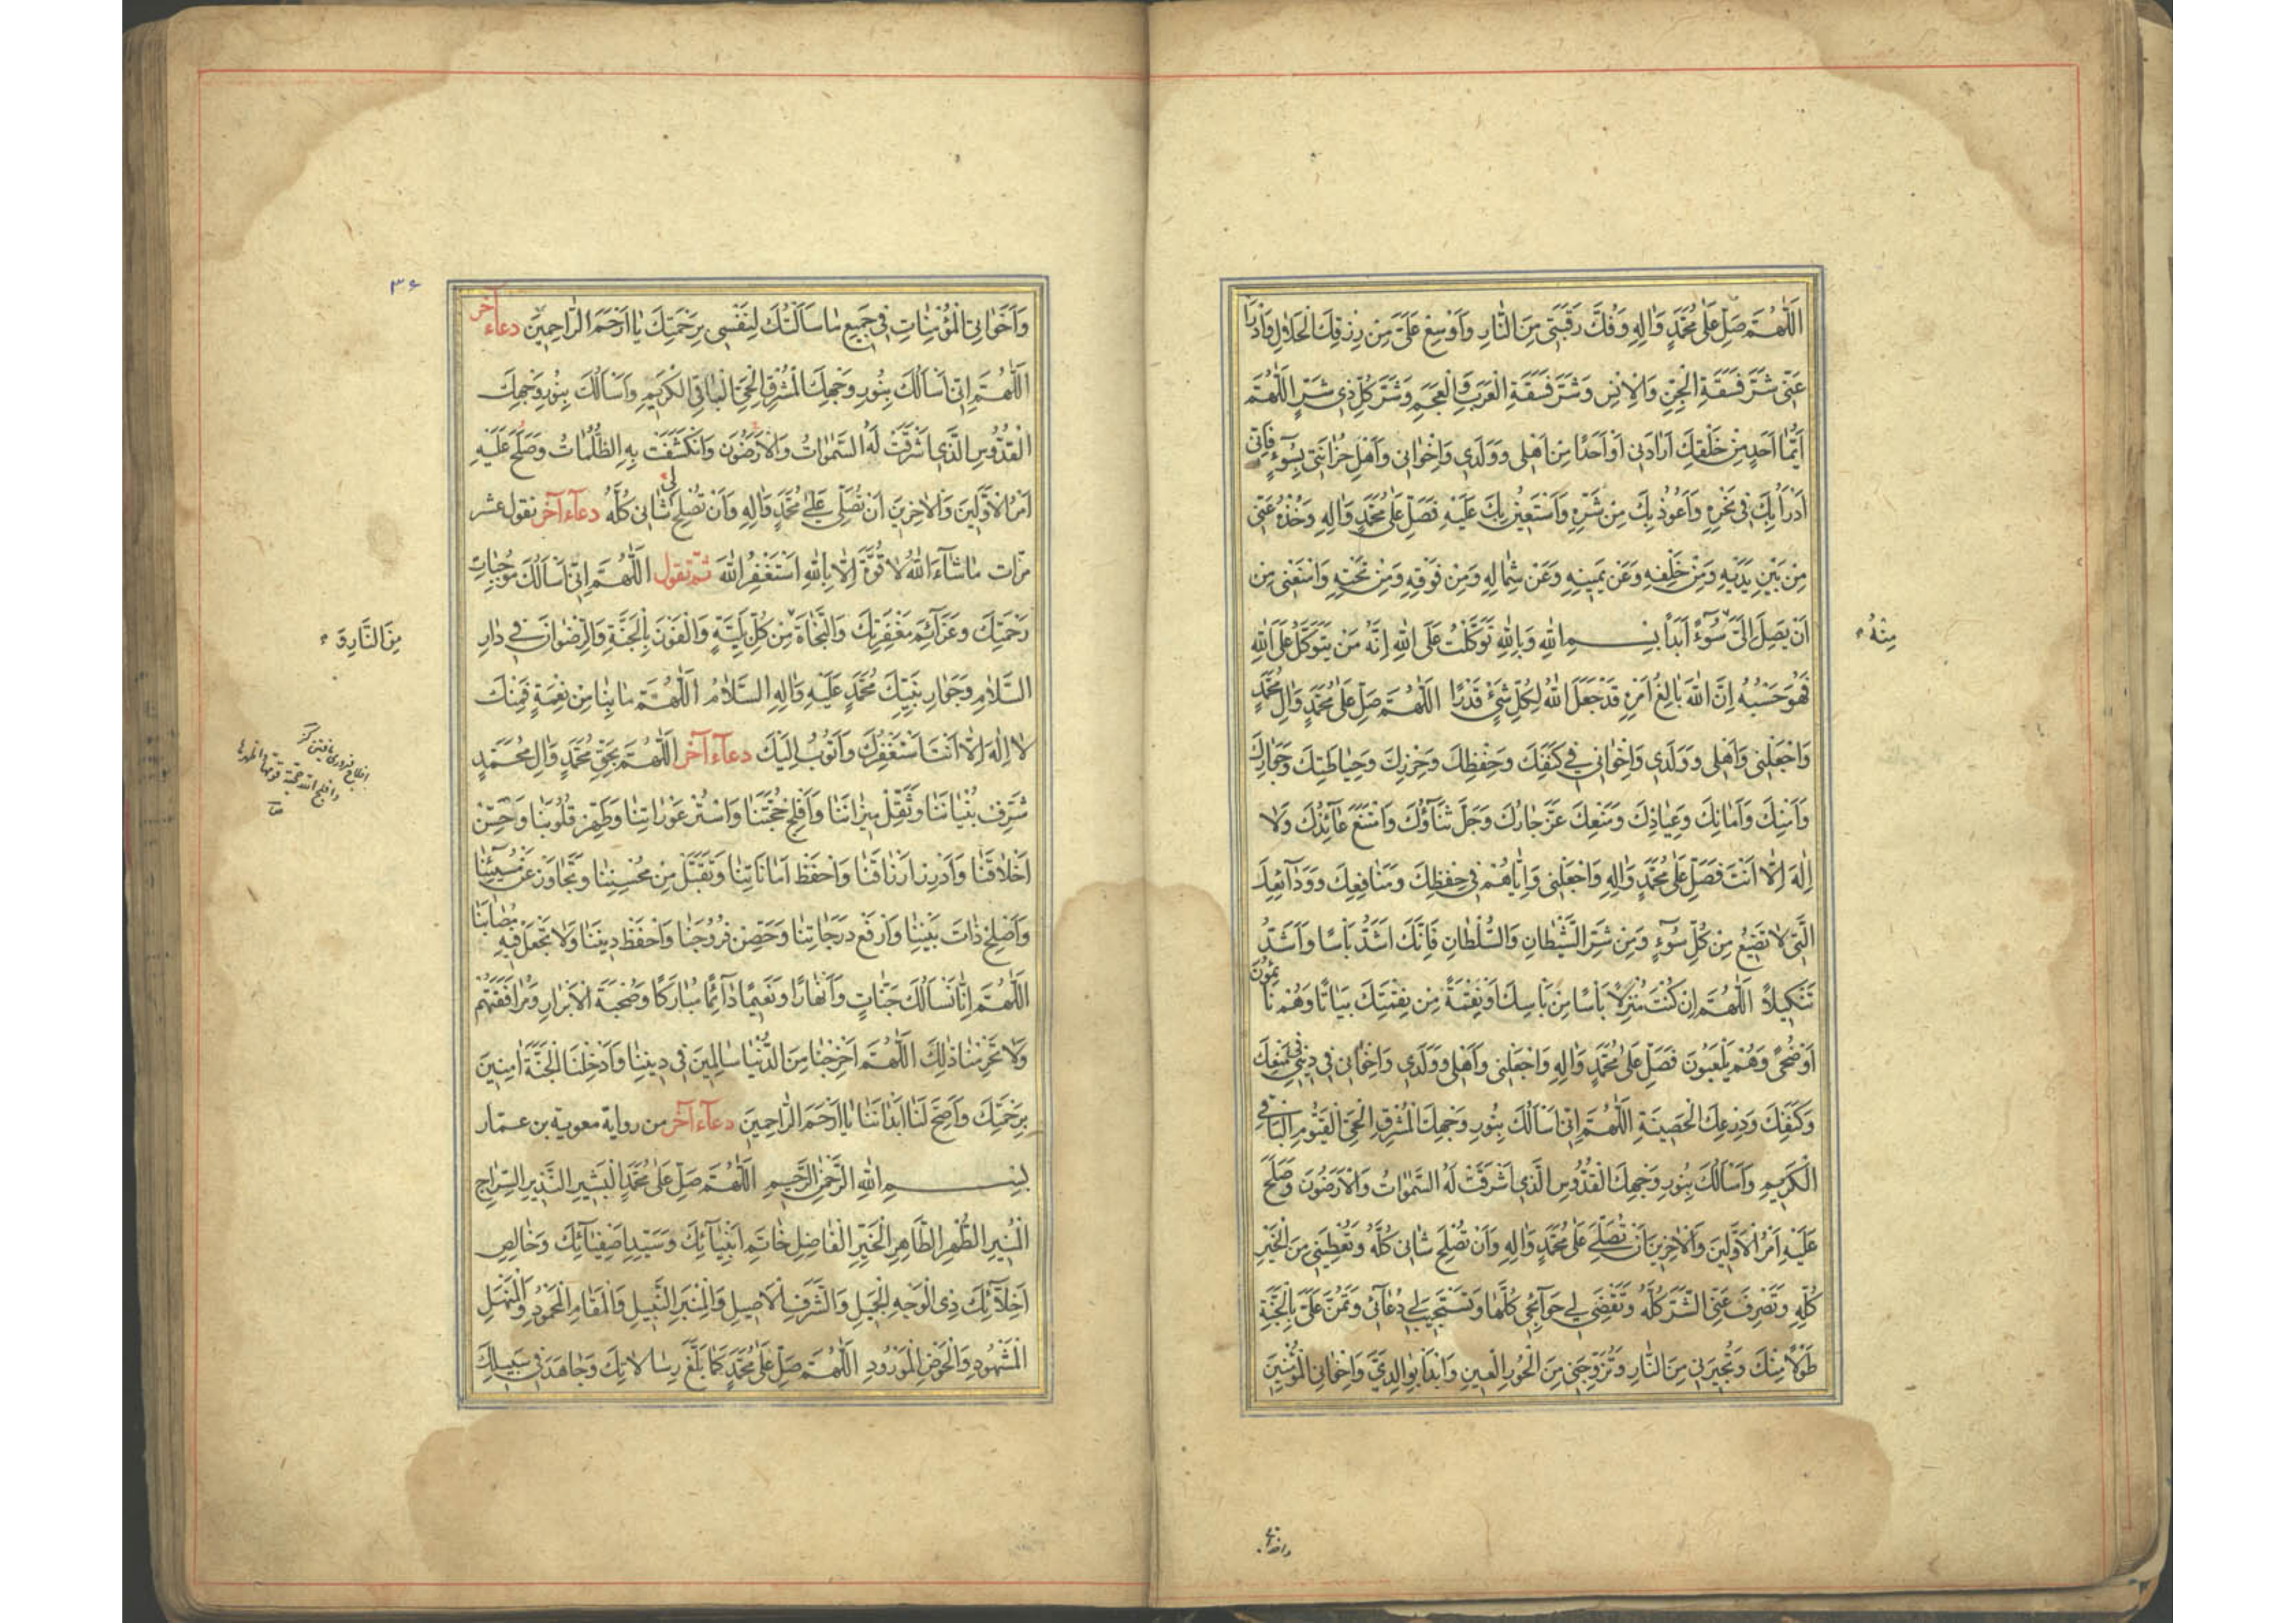 اَللّٰهُمَّ صَلِّ عَلٰى مُحَمَّدٍ وَاٰلِهِ وَفُكَّ رَقَبَتِي مِنَ النَّارِ وَاَوْسِعْ عَلَيَّ مِنْ رِزْقِكَ الْحَلَالِ وَادْرَأْ
عَنِّي شَرَّ فَسَقَةِ الْجِنِّ وَالْاِنْسِ وَشَرَّ فَسَقَةِ الْعَرَبِ وَالْعَجَمِ وَشَرَّ كُلِّ ذِي شَرٍّ اَللّٰهُمَّ
اَيُّمَا اَحَدٍ مِنْ خَلْقِكَ اَرَادَنِي اَوْ اَحَدًا مِنْ اَهْلِي وَوَلَدِي وَاِخْوَانِي وَاَهْلِ حُزَانَتِي بِسُوۤءٍ فَاِنِّي
اَدْرَاُ بِكَ فِي نَحْرِهِ وَاَعُوذُ بِكَ مِنْ شَرِّهِ وَاَسْتَعِينُ بِكَ عَلَيْهِ فَصَلِّ عَلٰى مُحَمَّدٍ وَاٰلِهِ وَخُذْهُ عَنِّي
مِنْ بَيْنِ يَدَيْهِ وَمِنْ خَلْفِهِ وَعَنْ يَمِينِهِ وَعَنْ شِمَالِهِ وَمِنْ فَوْقِهِ وَمِنْ تَحْتِهِ وَامْنَعْنِي مِنْ
اَنْ يَصِلَ اِلَيَّ سُوۤءٌ اَبَدًا بِسْمِ اللّٰهِ وَبِاللّٰهِ تَوَكَّلْتُ عَلَى اللّٰهِ اِنَّهُ مَنْ يَتَوَكَّلْ عَلَى اللّٰهِ
مِنْهُ
فَهُوَ حَسْبُهُ اِنَّ اللّٰهَ بَالِغُ اَمْرِهِ قَدْ جَعَلَ اللّٰهُ لِكُلِّ شَيْءٍ قَدْرًا اَللّٰهُمَّ صَلِّ عَلٰى مُحَمَّدٍ وَاٰلِ مُحَمَّدٍ
وَاجْعَلْنِي وَاَهْلِي وَوَلَدِي وَاِخْوَانِي فِي كَنَفِكَ وَحِفْظِكَ وَحِرْزِكَ وَحِيَاطَتِكَ وَجِوَارِكَ
وَاَمْنِكَ وَاَمَانِكَ وَعِيَاذِكَ وَمَنْعِكَ عَزَّ جَارُكَ وَجَلَّ ثَنَاۤؤُكَ وَامْتَنَعَ عَاۤئِذُكَ وَلَا
اِلٰهَ اِلَّا اَنْتَ فَصَلِّ عَلٰى مُحَمَّدٍ وَاٰلِهِ وَاجْعَلْنِي وَاِيَّاهُمْ فِي حِفْظِكَ وَمَنَافِعِكَ وَوَدَاۤئِعِكَ
الَّتِي لَا تَضِيعُ مِنْ كُلِّ سُوۤءٍ وَمِنْ شَرِّ الشَّيْطَانِ وَالسُّلْطَانِ فَاِنَّكَ اَشَدُّ بَاْسًا وَاَشَدُّ
تَنْكِيلًا اَللّٰهُمَّ اِنْ كُنْتَ مُنْزِلًا بَاْسًا مِنْ بَاْسِكَ اَوْ نِقْمَةً مِنْ نِقْمَتِكَ بَيَاتًا وَهُمْ نَاۤئِمُونَ
اَوْ ضُحًى وَهُمْ يَلْعَبُونَ فَصَلِّ عَلٰى مُحَمَّدٍ وَاٰلِهِ وَاجْعَلْنِي وَاَهْلِي وَوَلَدِي وَاِخْوَانِي فِي دِينِي فِي مَنْعِكَ
وَكَنَفِكَ وَدِرْعِكَ الْحَصِينَةِ اَللّٰهُمَّ اِنِّي اَسْاَلُكَ بِنُورِ وَجْهِكَ الْمُشْرِقِ الْحَيِّ الْقَيُّومِ الْبَاقِي
الْكَرِيمِ وَاَسْاَلُكَ بِنُورِ وَجْهِكَ الْقُدُّوسِ الَّذِي اَشْرَقَتْ لَهُ السَّمٰوَاتُ وَالْاَرَضُونَ وَصَلَحَ
عَلَيْهِ اَمْرُ الْاَوَّلِينَ وَالْاٰخِرِينَ اَنْ تُصَلِّيَ عَلٰى مُحَمَّدٍ وَاٰلِهِ وَاَنْ تُصْلِحَ شَانِي كُلَّهُ وَتُعْطِيَنِي مِنَ الْخَيْرِ
كُلِّهِ وَتَصْرِفَ عَنِّي الشَّرَّ كُلَّهُ وَتَقْضِيَ لِي حَوَاۤئِجِي كُلَّهَا وَتَسْتَجِيبَ لِي دُعَاۤئِي وَتَمُنَّ عَلَيَّ بِالْجَنَّةِ
طَوْلًا مِنْكَ وَتُجِيرَنِي مِنَ النَّارِ وَتُزَوِّجَنِي مِنَ الْحُورِ الْعِينِ وَابْدَاْ بِوَالِدَيَّ وَاِخْوَانِي الْمُؤْمِنِينَ
۳۶
وَاَخَوَاتِي الْمُؤْمِنَاتِ فِي جَمِيعِ مَا سَاَلْتُكَ لِنَفْسِي بِرَحْمَتِكَ يَا اَرْحَمَ الرَّاحِمِينَ دعاء آخر
اَللّٰهُمَّ اِنِّي اَسْاَلُكَ بِنُورِ وَجْهِكَ الْمُشْرِقِ الْحَيِّ الْبَاقِي الْكَرِيمِ وَاَسْاَلُكَ بِنُورِ وَجْهِكَ
الْقُدُّوسِ الَّذِي اَشْرَقَتْ لَهُ السَّمٰوَاتُ وَالْاَرَضُونَ وَانْكَشَفَتْ بِهِ الظُّلُمَاتُ وَصَلَحَ عَلَيْهِ
اَمْرُ الْاَوَّلِينَ وَالْاٰخِرِينَ اَنْ تُصَلِّيَ عَلٰى مُحَمَّدٍ وَاٰلِهِ وَاَنْ تُصْلِحَ لِي شَانِي كُلَّهُ دعاء آخر تقول عشر
مرّات مَا شَاۤءَ اللّٰهُ لَا قُوَّةَ اِلَّا بِاللّٰهِ اَسْتَغْفِرُ اللّٰهَ ثمّ تقول اَللّٰهُمَّ اِنِّي اَسْاَلُكَ مُوجِبَاتِ
رَحْمَتِكَ وَعَزَاۤئِمَ مَغْفِرَتِكَ وَالنَّجَاةَ مِنْ كُلِّ بَلِيَّةٍ وَالْفَوْزَ بِالْجَنَّةِ وَالرِّضْوَانَ فِي دَارِ
مِنَ النَّارِ وَ
السَّلَامِ وَجِوَارِ نَبِيِّكَ مُحَمَّدٍ عَلَيْهِ وَاٰلِهِ السَّلَامُ اَللّٰهُمَّ مَا بِنَا مِنْ نِعْمَةٍ فَمِنْكَ
لَا اِلٰهَ اِلَّا اَنْتَ اَسْتَغْفِرُكَ وَاَتُوبُ اِلَيْكَ دعاء آخر اَللّٰهُمَّ بِحَقِّ مُحَمَّدٍ وَاٰلِ مُحَمَّدٍ
شَرِّفْ بُنْيَانَنَا وَثَقِّلْ مِيزَانَنَا وَاَفْلِجْ حُجَّتَنَا وَاسْتُرْ عَوْرَاتِنَا وَطَهِّرْ قُلُوبَنَا وَحَسِّنْ
اَخْلَاقَنَا وَاَدْرِرْ اَرْزَاقَنَا وَاحْفَظْ اَمَانَاتِنَا وَتَقَبَّلْ مِنْ مُحْسِنِنَا وَتَجَاوَزْ عَنْ مُسِيۤئِنَا
وَاَصْلِحْ ذَاتَ بَيْنِنَا وَارْفَعْ دَرَجَاتِنَا وَحَصِّنْ فُرُوجَنَا وَاحْفَظْ دِينَنَا وَلَا تَجْعَلْ فِيهِ مُصَابَنَا
اَللّٰهُمَّ اِنَّا نَسْاَلُكَ جَنَّاتٍ وَاَنْهَارًا وَنَعِيمًا دَاۤئِمًا مُبَارَكًا وَصُحْبَةَ الْاَبْرَارِ وَمُرَافَقَتَهُمْ
وَلَا تَحْرِمْنَا ذٰلِكَ اَللّٰهُمَّ اَخْرِجْنَا مِنَ الدُّنْيَا سَالِمِينَ فِي دِينِنَا وَاَدْخِلْنَا الْجَنَّةَ اٰمِنِينَ
بِرَحْمَتِكَ وَاَصِحَّ لَنَا اَبْدَانَنَا يَا اَرْحَمَ الرَّاحِمِينَ دعاء آخر من رواية معوية بن عمّار
بِسْمِ اللّٰهِ الرَّحْمٰنِ الرَّحِيمِ اَللّٰهُمَّ صَلِّ عَلٰى مُحَمَّدٍ الْبَشِيرِ النَّذِيرِ السِّرَاجِ
الْمُنِيرِ الطُّهْرِ الطَّاهِرِ الْخَيِّرِ الْفَاضِلِ خَاتَمِ اَنْبِيَاۤئِكَ وَسَيِّدِ اَصْفِيَاۤئِكَ وَخَالِصِ
اَخِلَّاۤئِكَ ذِي الْوَجْهِ الْجَمِيلِ وَالشَّرَفِ الْاَصِيلِ وَالْمِنْبَرِ النَّبِيلِ وَالْمَقَامِ الْمَحْمُودِ وَالْمَنْهَلِ
الْمَشْهُودِ وَالْحَوْضِ الْمَوْرُودِ اَللّٰهُمَّ صَلِّ عَلٰى مُحَمَّدٍ كَمَا بَلَّغَ رِسَالَاتِكَ وَجَاهَدَ فِي سَبِيلِكَ